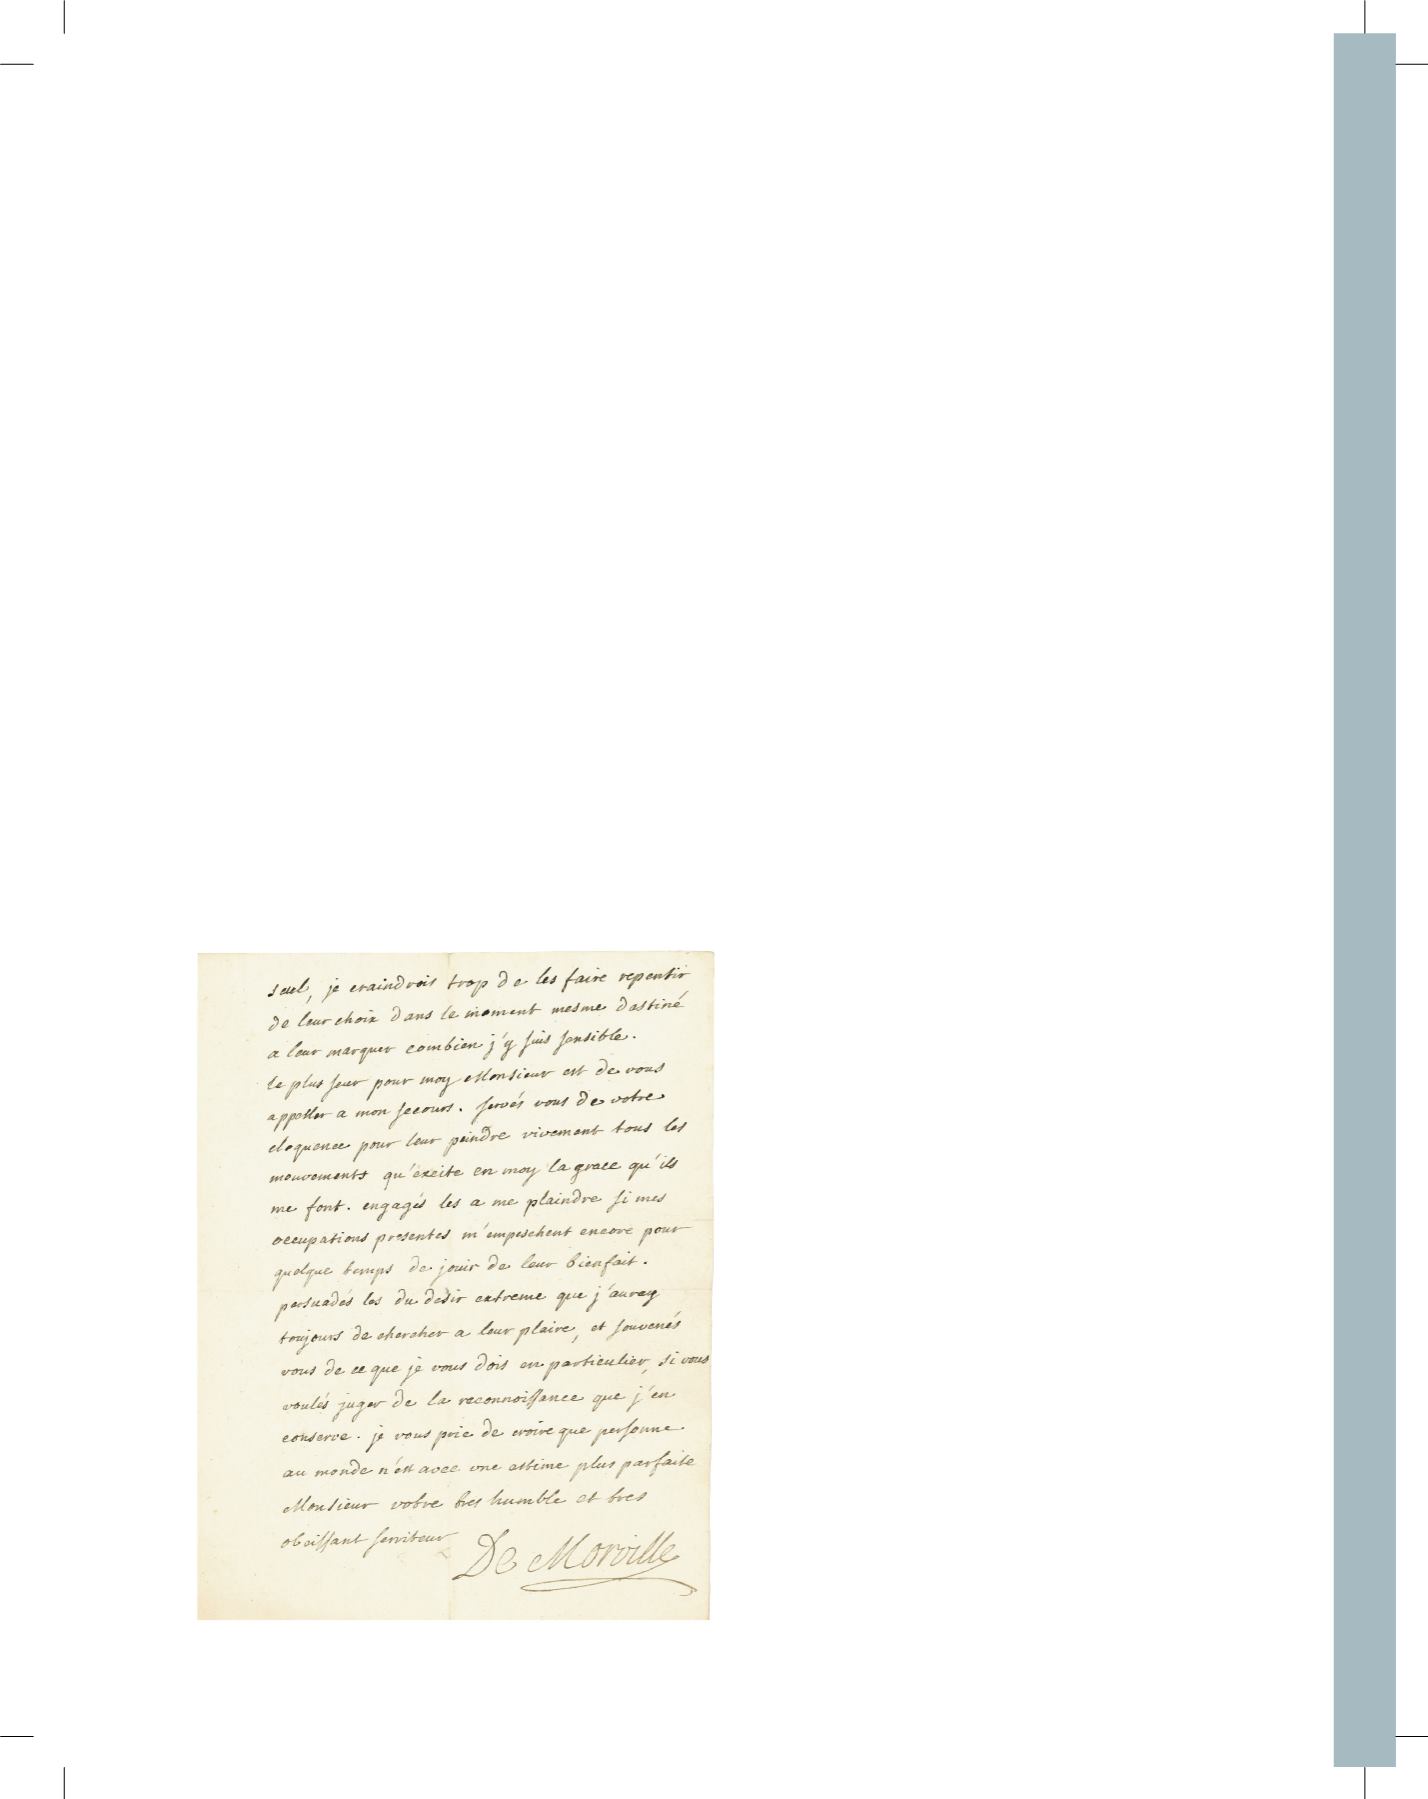 seul, je craindrois trop de les faire repentir
de leur choix dans le moment mesme destiné
a leur marquer combien j'y suis sensible.
le plus seur pour moy Monsieur est de vous
appeller a mon secours. servés vous de votre
eloquence pour leur peindre vivement tous les
mouvements qu'excite en moy la grace qu'ils
me font. engagés les a me plaindre si mes
occupations presentes m'empeschent encore pour
quelque temps de jouir de leur bienfait.
persuadés les du desir extreme que j'auray
toujours de chercher a leur plaire, et souvenés
vous de ce que je vous dois en particulier, si vous
voulés juger de la reconnoissance que j'en
conserve. je vous prie de croire que personne
au monde n'est avec une estime plus parfaite
Monsieur votre tres humble et tres
obeissant serviteur De Morville